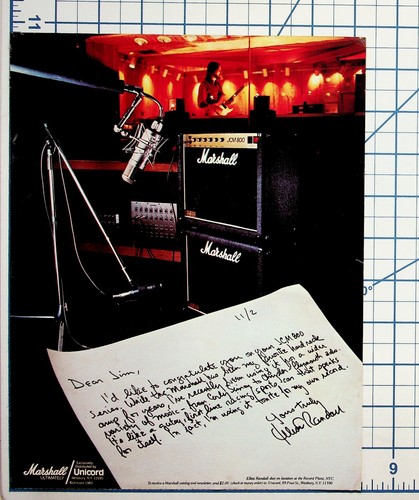 11
JCM 800
Marshall
Marshall
0°
11/2
Dear Jim,
I'd like to congratulate you on your JCM 800
series. While the Marshall has been my favorite hard rock
amp for years, I've recently been using it for a wider
variety of music - from Carly Simon to
it's like a
for itself. In fact, I'm using it to my own record.
Yours Truly,
Elliot Randall
Marshall
ULTIMATELY
Exclusively
Distributed by
Unicord
Westbury, NY 11590
Elliot Randall shot on location at the Record Plant, NYC.
To receive a Marshall catalog and newsletter, send $2.00 check or money order to Unicord, 89 Frost St., Westbury, N.Y. 11590
9